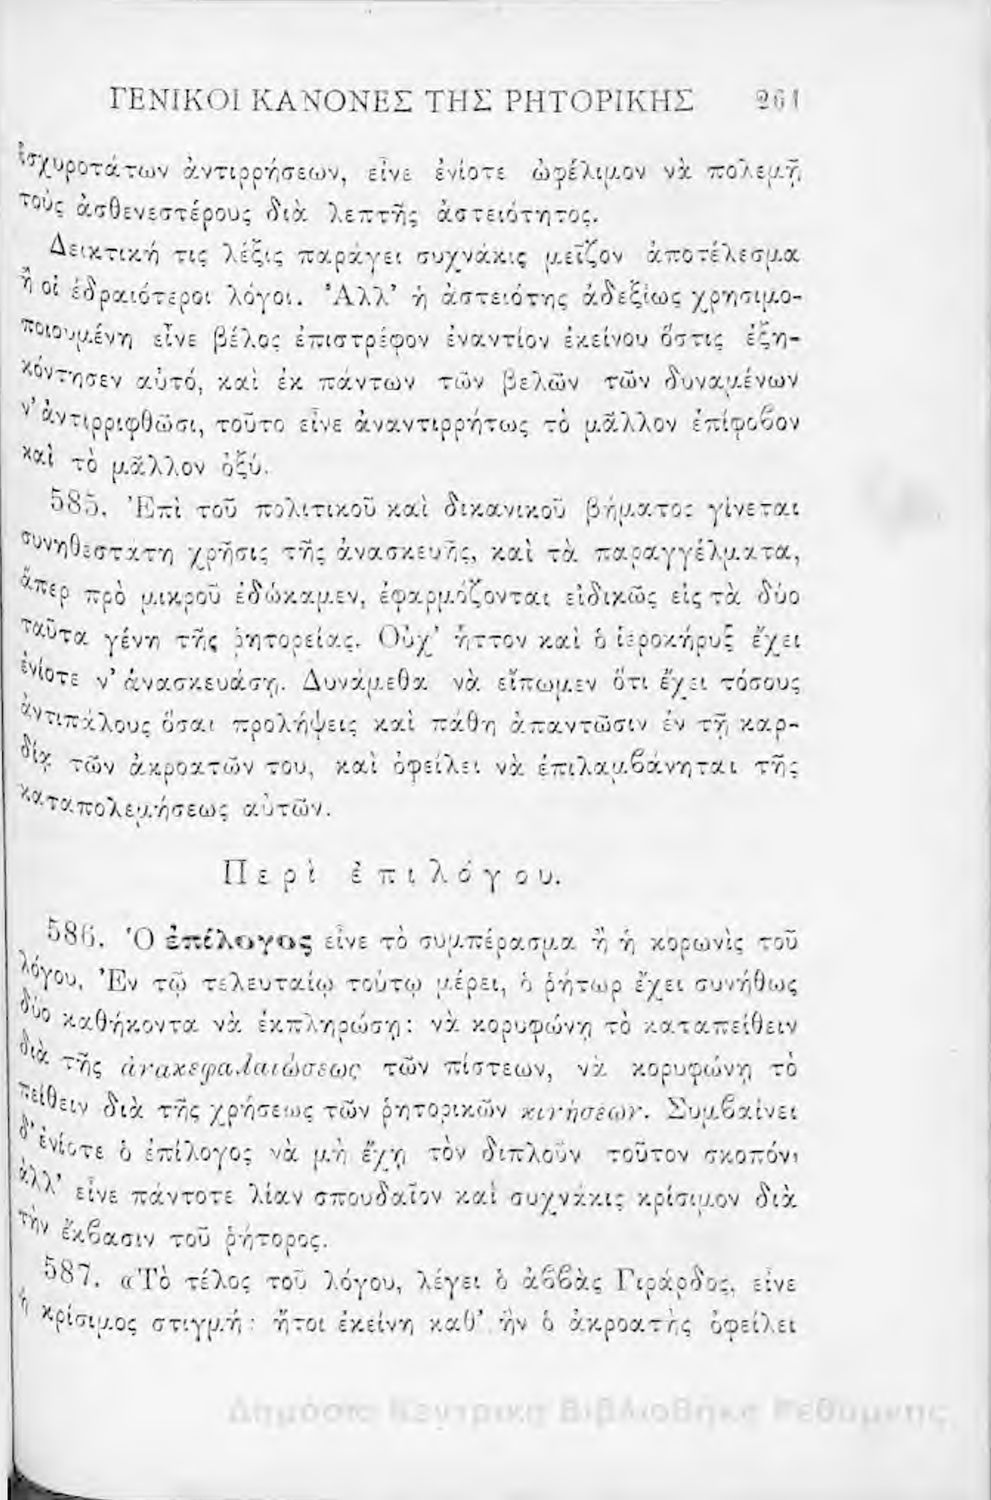 ΓΕΝΙΚΟΙ ΚΑΝΟΝΕΣ ΤΗΣ ΡΗΤΟΡΙΚΗΣ 261
ἰσχυροτάτων ἀντιρρήσεων, εἶνε ἐνίοτε ὠφέλιμον νὰ πολεμῇ
τοὺς ἀσθενεστέρους διὰ λεπτῆς ἀστειότητος.
Δεικτική τις λέξις παράγει συχνάκις μεῖζον ἀποτέλεσμα
ἢ οἱ ἑδραιότεροι λόγοι. Ἀλλ’ ἡ ἀστειότης ἀδεξίως χρησιμο-
ποιουμένη εἶνε βέλος ἐπιστρέφον ἐναντίον ἐκείνου ὅστις ἐξη-
κόντησεν αὐτό, καὶ ἐκ πάντων τῶν βελῶν τῶν δυναμένων
ν’ ἀντιρριφθῶσι, τοῦτο εἶνε ἀναντιρρήτως τὸ μᾶλλον ἐπίφοβον
καὶ τὸ μᾶλλον ὀξύ.
585. Ἐπὶ τοῦ πολιτικοῦ καὶ δικανικοῦ βήματος γίνεται
συνηθεστάτη χρῆσις τῆς ἀνασκευῆς, καὶ τὰ παραγγέλματα,
ἅπερ πρὸ μικροῦ ἐδώκαμεν, ἐφαρμόζονται εἰδικῶς εἰς τὰ δύο
ταῦτα γένη τῆς ῥητορείας. Οὐχ’ ἧττον καὶ ὁ ἱεροκήρυξ ἔχει
ἐνίοτε ν’ ἀνασκευάσῃ. Δυνάμεθα νὰ εἴπωμεν ὅτι ἔχει τόσους
ἀντιπάλους ὅσαι προλήψεις καὶ πάθη ἀπαντῶσιν ἐν τῇ καρ-
δίᾳ τῶν ἀκροατῶν του, καὶ ὀφείλει νὰ ἐπιλαμβάνηται τῆς
καταπολεμήσεως αὐτῶν.
Περὶ ἐπιλόγου.
586. Ὁ ἐπίλογος εἶνε τὸ συμπέρασμα ἢ ἡ κορωνὶς τοῦ
λόγου. Ἐν τῷ τελευταίῳ τούτῳ μέρει, ὁ ῥήτωρ ἔχει συνήθως
δύο καθήκοντα νὰ ἐκπληρώσῃ: νὰ κορυφώνῃ τὸ καταπείθειν
διὰ τῆς ἀνακεφαλαιώσεως τῶν πίστεων, νὰ κορυφώνῃ τὸ
πείθειν διὰ τῆς χρήσεως τῶν ῥητορικῶν κινήσεων. Συμβαίνει
δ’ ἐνίοτε ὁ ἐπίλογος νὰ μὴ ἔχῃ τὸν διπλοῦν τοῦτον σκοπόν·
ἀλλ’ εἶνε πάντοτε λίαν σπουδαῖον καὶ συχνάκις κρίσιμον διὰ
τὴν ἔκβασιν τοῦ ῥήτορος.
587. «Τὸ τέλος τοῦ λόγου, λέγει ὁ ἀββᾶς Γιράρδος, εἶνε
ἡ κρίσιμος στιγμή· ἤτοι ἐκείνη καθ’ ἣν ὁ ἀκροατὴς ὀφείλει
Δημόσια Κεντρική Βιβλιοθήκη Ρεθύμνης